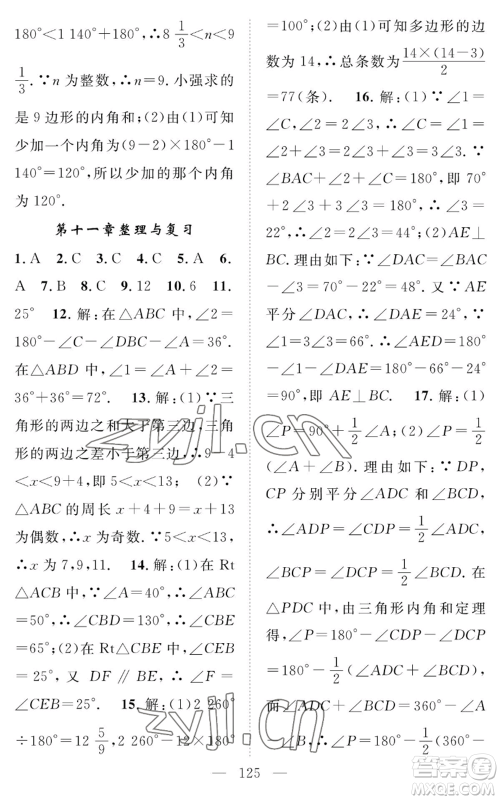 180°＜1 140°＋180°，∴8 1/3＜n＜9
1/3．∵n为整数，∴n＝9．小强求的
是9边形的内角和；(2)由(1)可知
少加一个内角(9－2)×180°－1
140°＝120°，所以少加的那个内角
为120°．
第十一章整理与复习
1．A 2．C 3．C 4．C 5．A 6．
A 7．B 8．C 9．12 10．6 11．
25° 12．解：在△ABC中，∠2＝
180°－∠C－∠DBC－∠A＝36°．
在△ABD中，∠1＝∠2＋∠A＝
36°＋36°＝72°． 13．解：(1)∵三
角形的两边之和大于第三边，三角
形的两边之差小于第三边，∴9－4
＜x＜9＋4，即5＜x＜13； (2)∵
△ABC的周长x＋4＋9＝x＋13
为偶数，∴x为奇数．∵5＜x＜13，
∴x为7，9，11． 14．解：(1)在Rt
△ACB中，∵∠A＝40°，∴∠ABC
＝50°，∴∠CBD＝130°，∴∠CBE
＝65°；(2)在Rt△CBE中，∠CBE
＝65°，∴∠CEB＝180°－90°－65°
＝25°，又∵DF∥BE，∴∠F＝
∠CEB＝25°． 15．解：(1)2 260°
÷180°＝12 5/9，2 260°－12×180°
＝100°；(2)由(1)可知多边形的边
数为14，∴总条数为14×(14－3)/2
＝77(条)． 16．解：(1)∵∠1＝
∠C，∠2＝2∠3，∴∠2＝∠1＋
∠C＝2∠C，∴∠C＝∠3．∵
∠BAC＋∠2＋∠C＝180°，即70°
＋2∠3＋∠3＝180°，∴∠3＝
22°，∴∠2＝2∠3＝44°；(2)AE⊥
BC．理由如下：∵∠DAC＝∠BAC
－∠3＝70°－22°＝48°．又∵AE平
分∠DAC，∴∠DAE＝24°．∵
∠1＝∠3＝22°，∴∠AED＝180°
－∠1－∠DAE＝180°－66°－24°
＝90°，即AE⊥BC． 17．解：(1)
∠P＝90°＋1/2∠A；(2)∠P＝1/2
(∠A＋∠B)．理由如下：∵DP，
CP分别平分∠ADC和∠BCD，
∴∠ADP＝∠CDP＝1/2∠ADC，
∠BCP＝∠DCP＝1/2∠BCD．在
△PDC中，由三角形内角和定理
得，∠P＝180°－1/2∠ADC－1/2
∠BCD＝180°－1/2(∠ADC＋
∠BCD)＝180°－1/2(360°－
125
zyjl.cn
zyjl.cn